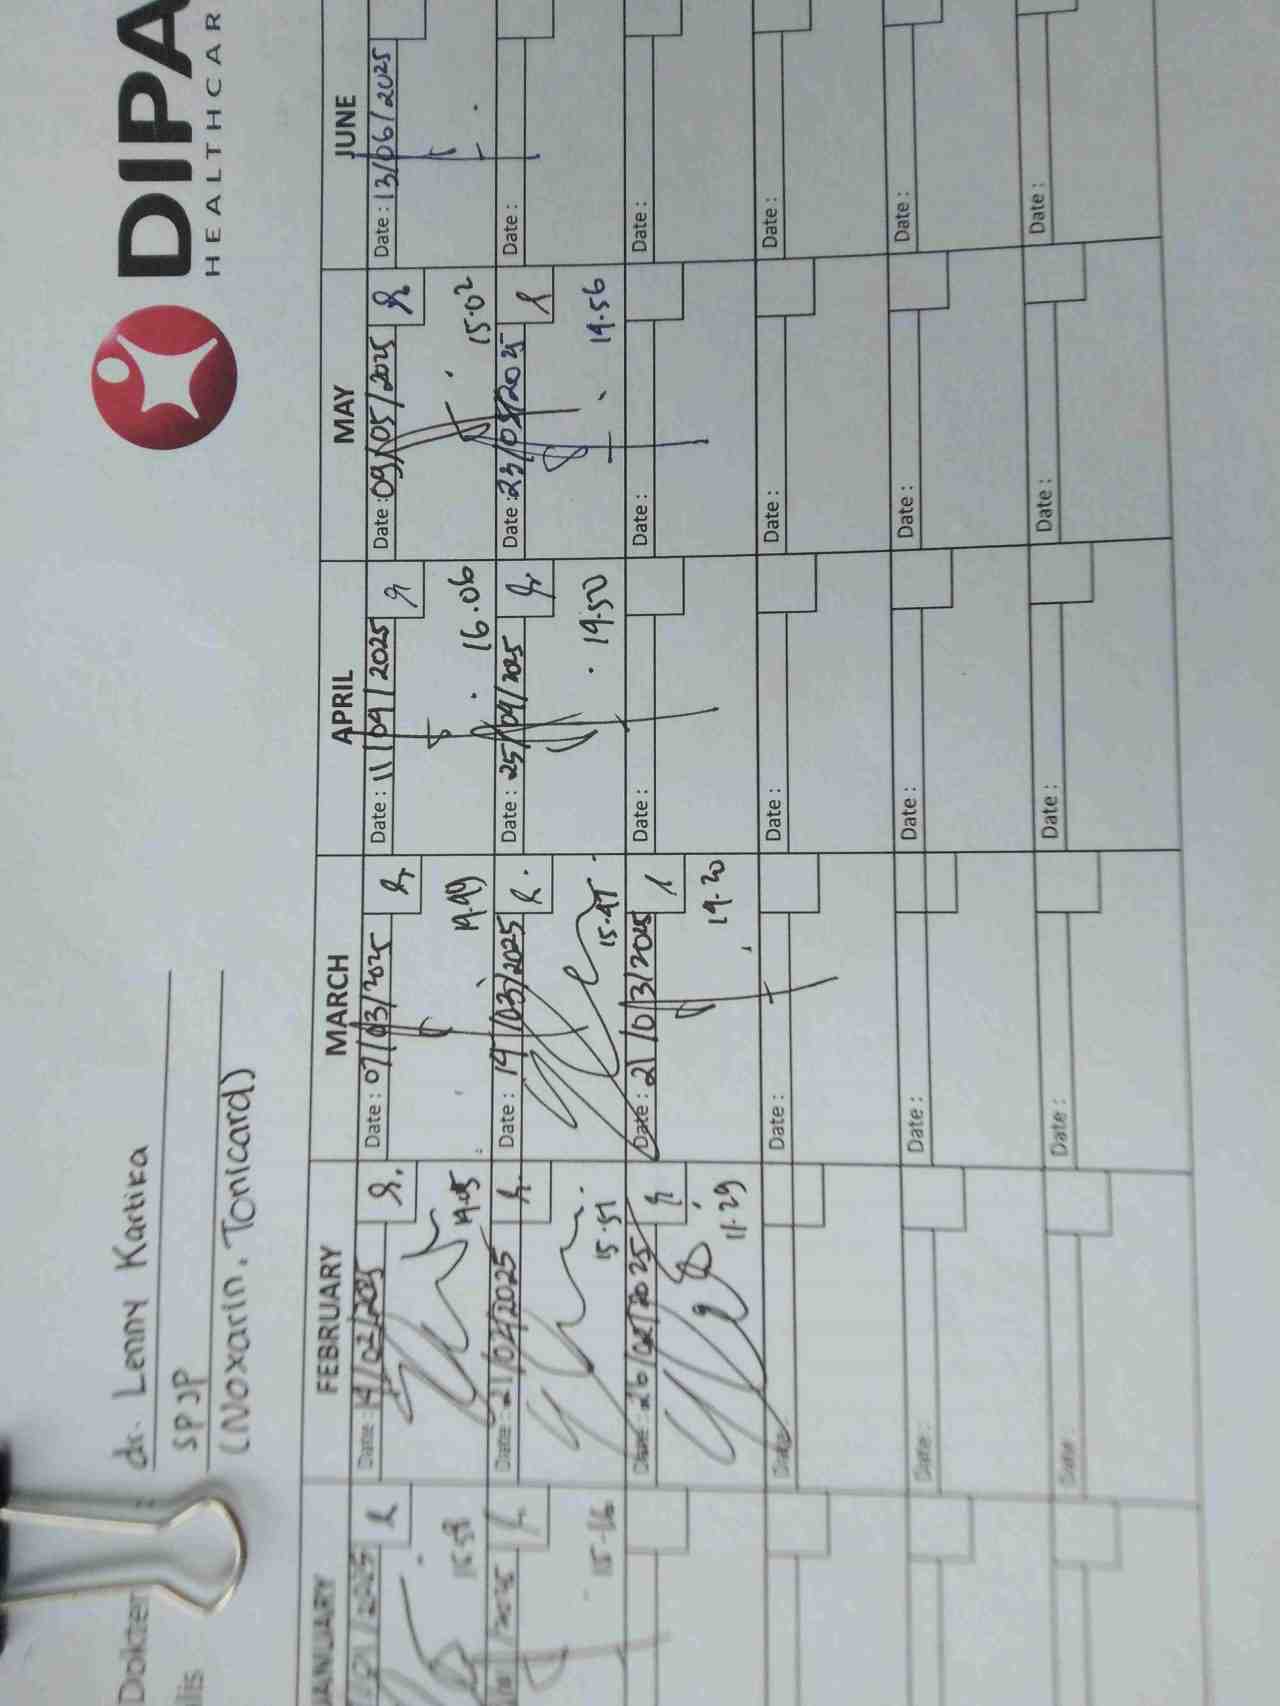 DIPA
HEALTHCAR
Dokter : dr. Lenny Kartika
SPJP
(Noxarin, Tonicard)
FEBRUARY MARCH APRIL MAY JUNE
Date : 14/02/2025 Date : 07/03/2025 Date : 11/04/2025 Date : 09/05/2025 Date : 13/06/2025
15.58 14.05 14.49 16.06 15.02
Date : 21/02/2025 Date : 14/03/2025 Date : 25/04/2025 Date : 23/05/2025 Date :
15.16 15.51 15.47 14.50 14.56
Date : 26/02/2025 Date : 21/03/2025 Date : Date : Date :
11.29 14.20
Date : Date : Date : Date : Date :
Date : Date : Date : Date : Date :
Date : Date : Date : Date : Date :